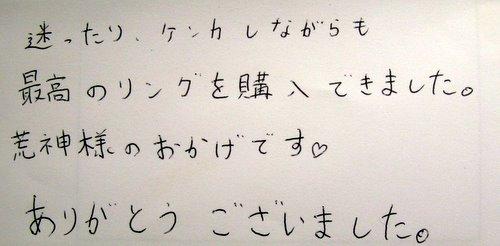 迷ったり、ケンカしながらも
最高のリングを購入できました。
荒神様のおかげです♡
ありがとうございました。